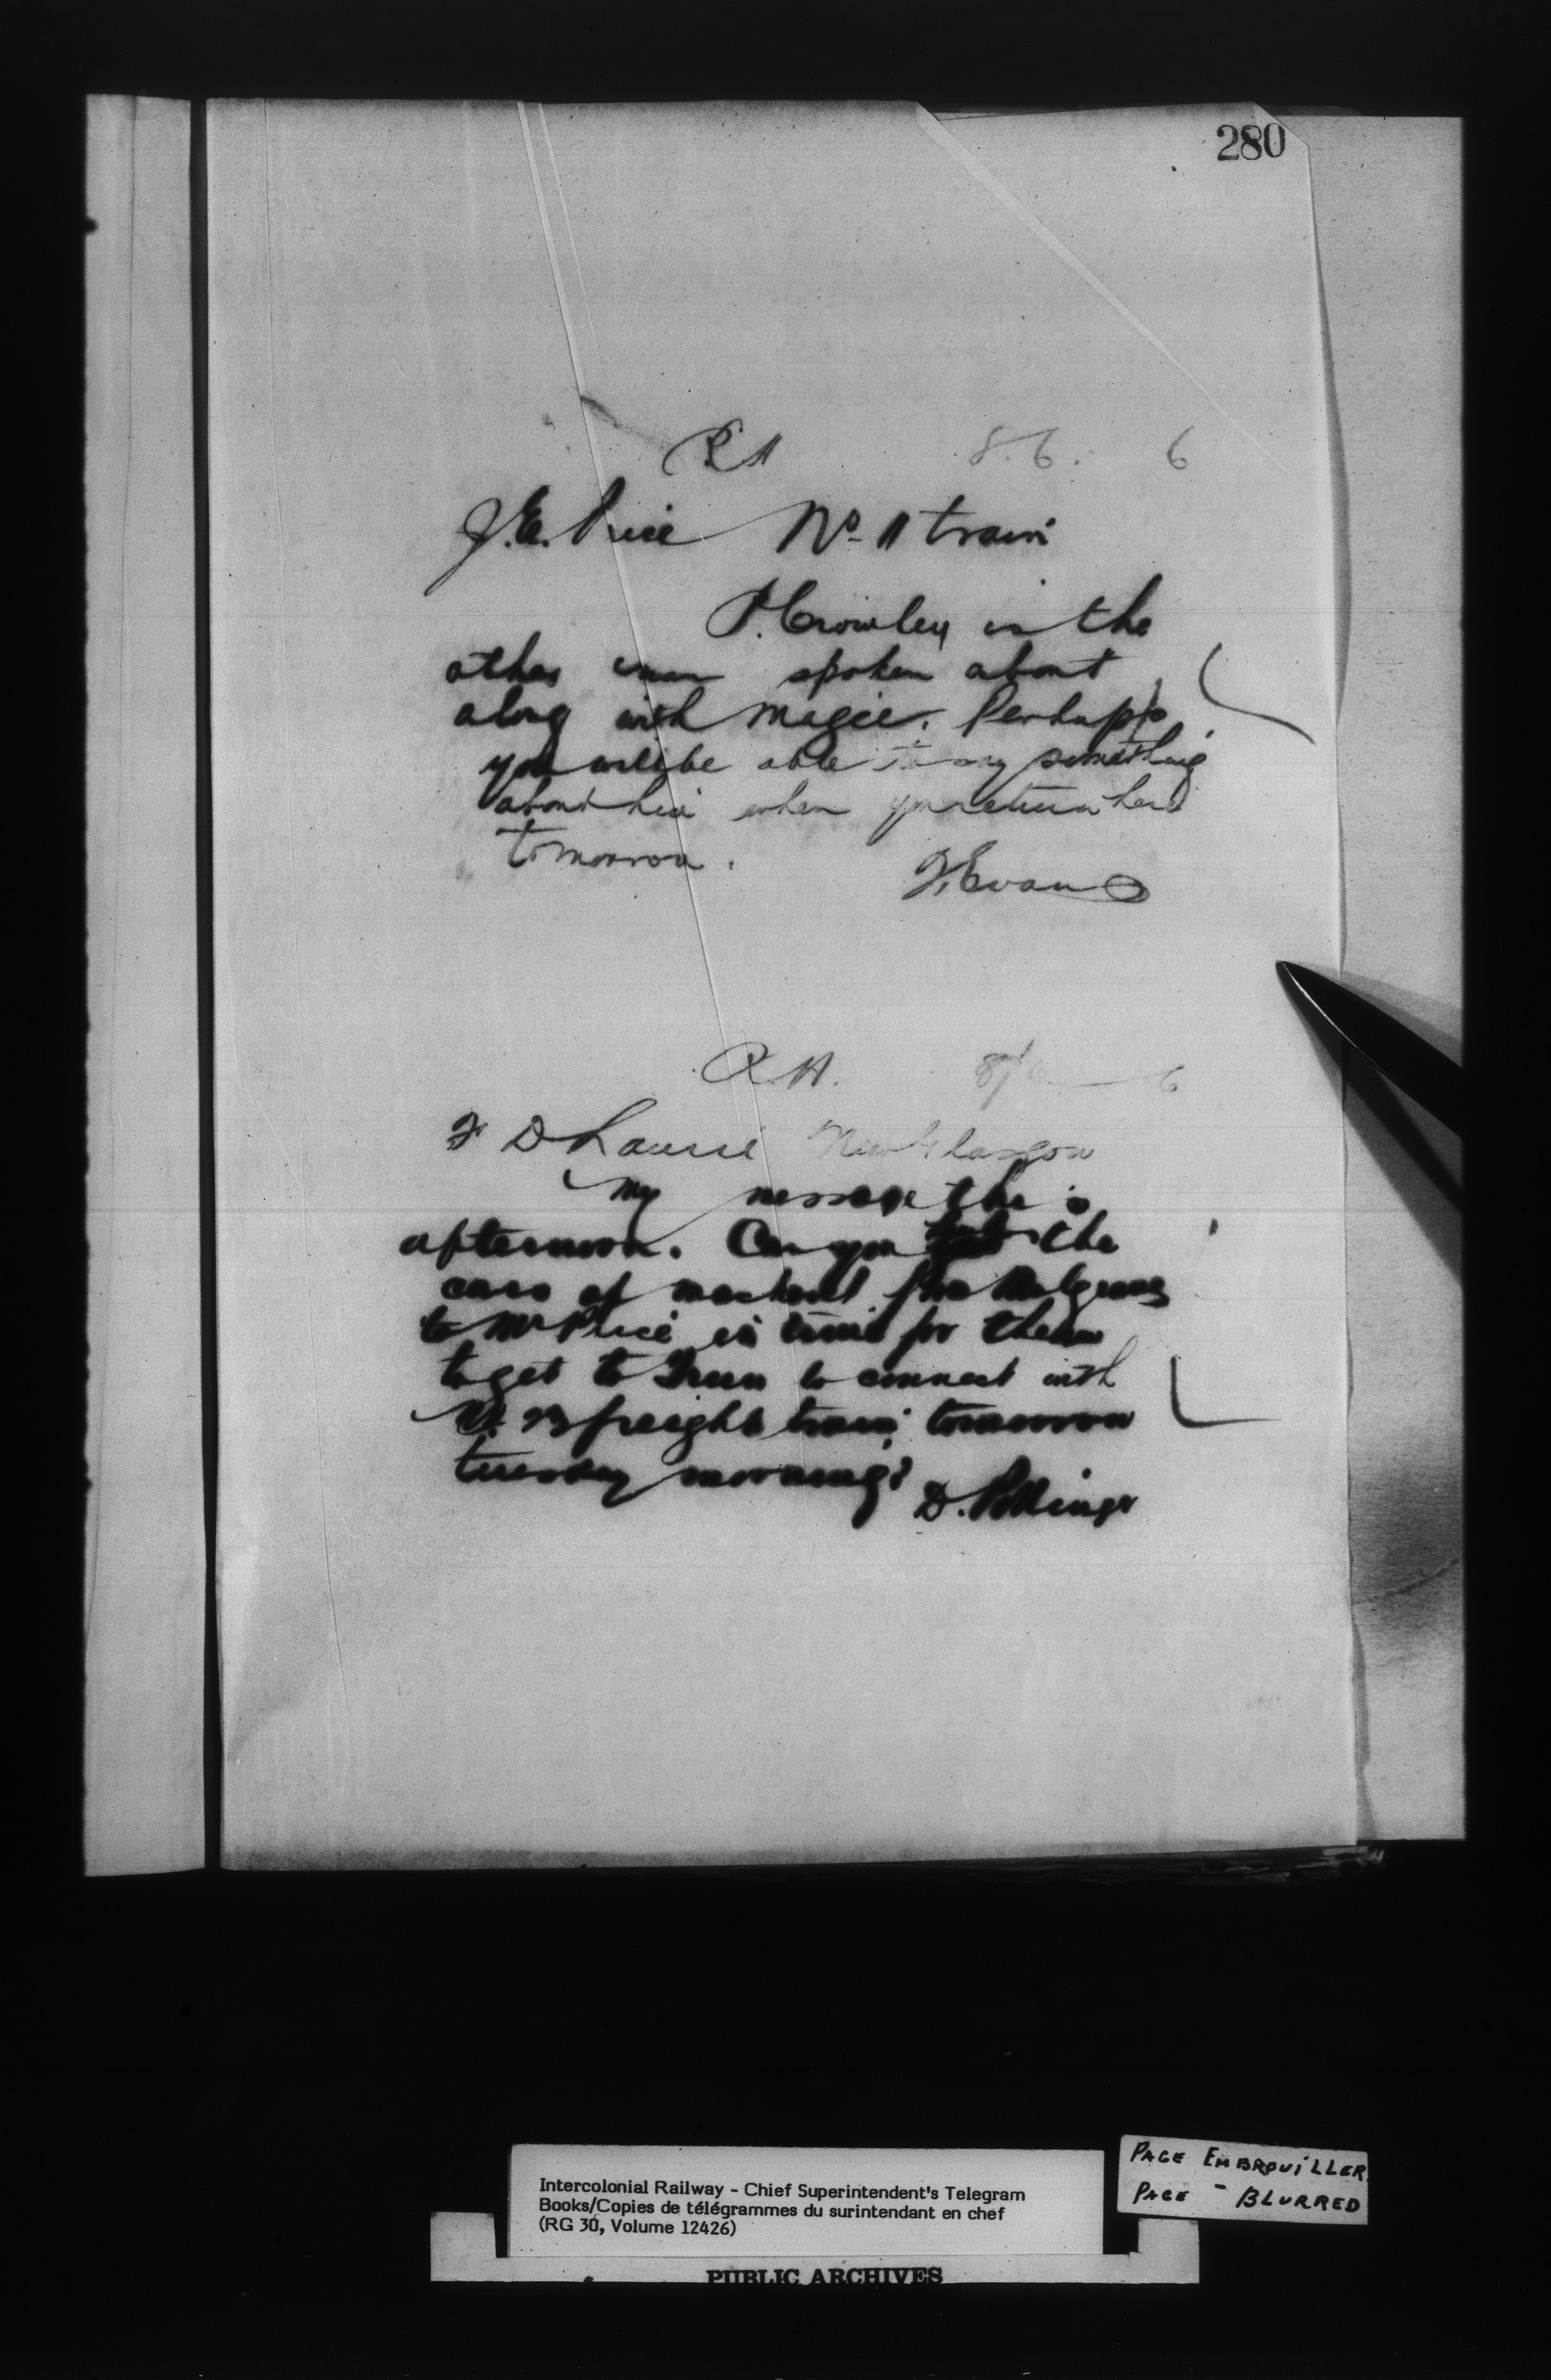 280
R.H 8.6. 6
J.E. Price No 11 train
P. Crowley is the
other man spoken about
along with Magee. Perhaps
you will be able to say something
about him when you return here
tomorrow.
T. Evans
R.H. 8/6 6
F D Laurie New Glasgow
My message this
afternoon. Can you the
cars of from Mulgrave
to Mr Price in time for them
to get to Truro to connect with
No. 23 freight train tomorrow
tuesday morning?
D. Pottinger
Intercolonial Railway - Chief Superintendent's Telegram
Books/Copies de télégrammes du surintendant en chef
(RG 30, Volume 12426)
PUBLIC ARCHIVES
PAGE EMBROUILLER
PAGE - BLURRED